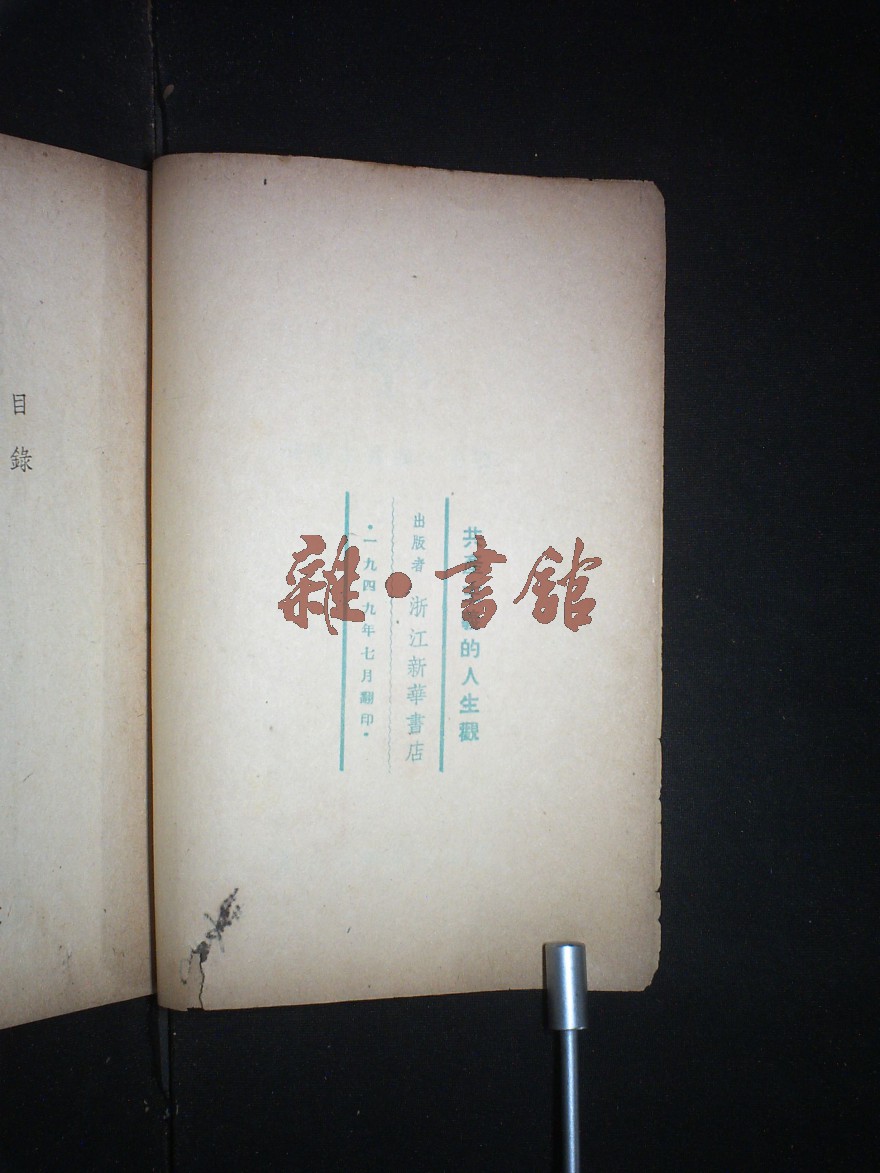 共产主義的人生觀
出版者 浙江新華書店
·一九四九年七月翻印·
目錄
雜·書館